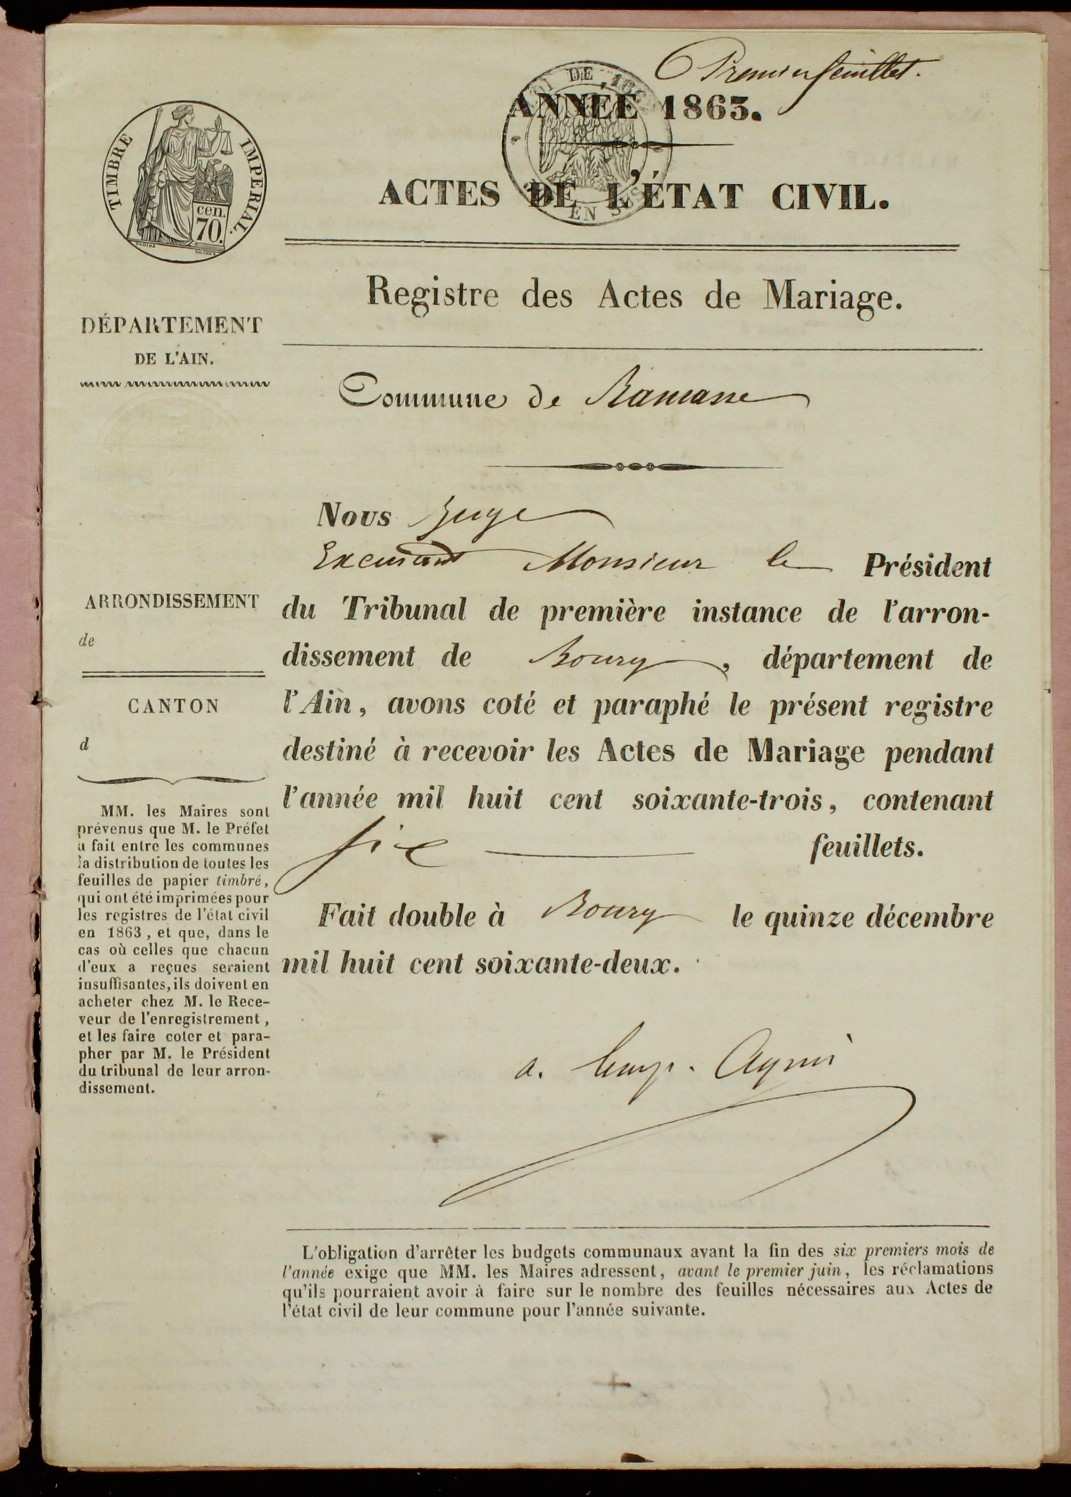 Premier feuillet.
ANNÉE 1863.
ACTES DE L'ÉTAT CIVIL.
TIMBRE IMPÉRIAL.
cen.
70.
Registre des Actes de Mariage.
DÉPARTEMENT
DE L'AIN.
Commune de Ramasse
Nous Juge
Excusant Monsieur le Président
du Tribunal de première instance de l'arron-
dissement de Bourg, département de
l'Ain, avons coté et paraphé le présent registre
destiné à recevoir les Actes de Mariage pendant
l'année mil huit cent soixante-trois, contenant
six feuillets.
Fait double à Bourg le quinze décembre
mil huit cent soixante-deux.
ARRONDISSEMENT
de
CANTON
d
MM. les Maires sont
prévenus que M. le Préfet
a fait entre les communes
la distribution de toutes les
feuilles de papier timbré,
qui ont été imprimées pour
les registres de l'état civil
en 1863, et que, dans le
cas où celles que chacun
d'eux a reçues seraient
insuffisantes, ils doivent en
acheter chez M. le Rece-
veur de l'enregistrement,
et les faire coter et para-
pher par M. le Président
du tribunal de leur arron-
dissement.
L'obligation d'arrêter les budgets communaux avant la fin des six premiers mois de
l'année exige que MM. les Maires adressent, avant le premier juin, les réclamations
qu'ils pourraient avoir à faire sur le nombre des feuilles nécessaires aux Actes de
l'état civil de leur commune pour l'année suivante.